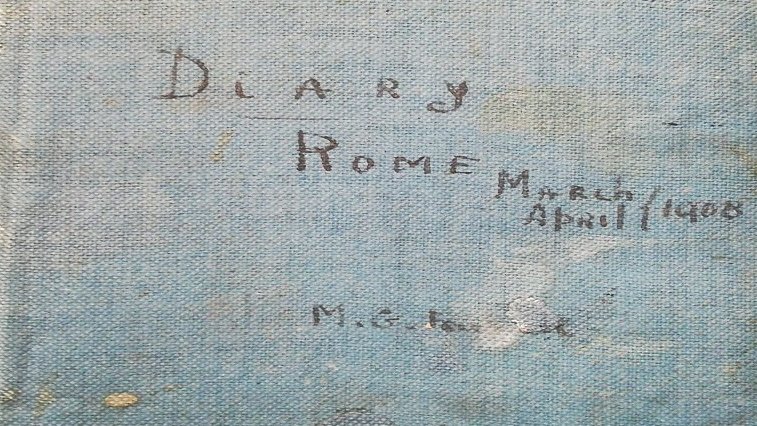 Diary
Rome
March/
April/1908
M. G.